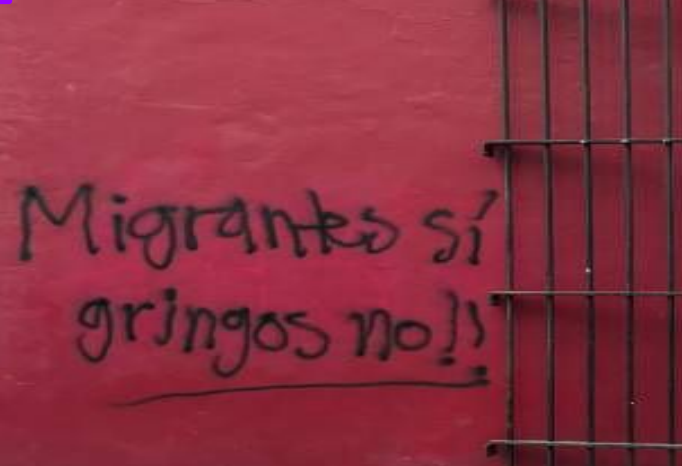 Migrantes sí
gringos no!!